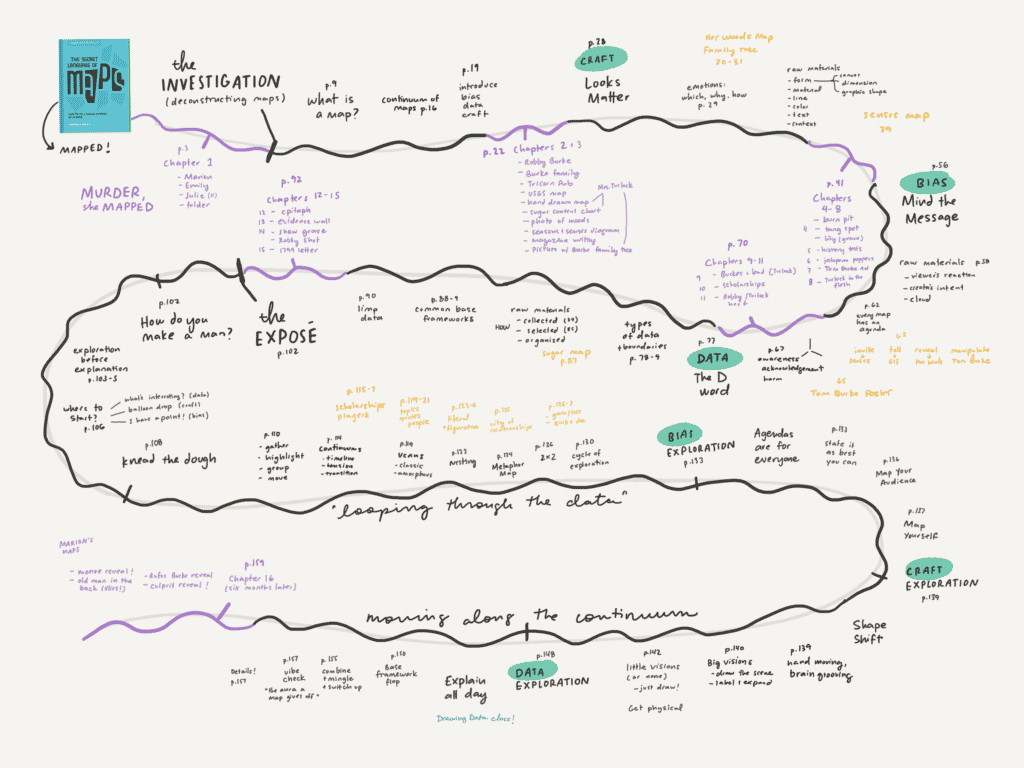 THE SECRET
LANGUAGE OF
MAPS
MAPPED!
the
INVESTIGATION
(deconstructing maps)
p.3
Chapter 1
- Marion
- Emily
- folder
MURDER,
she MAPPED
p.9
what is
a map?
continuum of
maps p.16
p.19
introduce
bias
data
craft
p.22 Chapters 2+3
- Robby Burke
- Burke family
- USGS map
- hand drawn map
- sugar content chart
- photo of woods
- season + senses diagram
- magazine writing
- Picture w/ Burke family tree
Mr. Turlock
p.28
CRAFT
Looks
Matter
Hot Woods Map
Family Tree
30-31
emotions:
which, why, how
p.29
raw materials
- form
- material
- line
- color
- text
- context
dimension
graphic shape
senses map
39
p.41
Chapters
4-8
- burn pit
4 - tang spot
5 - history tests
6 - jalapeno poppers
7 - Tom Burke ad
8 - Turlock in the
flesh
p.56
BIAS
Mind the
Message
raw materials p.58
- viewer's reaction
- creator's intent
- cloud
p.62
every map
has an
agenda
p.67
awareness
acknowledgement
harm
invite
tell
reveal
manipulate
Tom Burke
Tom Burke Poster
p.70
Chapters 9-11
9 - Burkes + bad (Turlock)
10 - scholarships
11 - Robby/Turlock
p.77
DATA
The D
word
types
of data
+ boundaries
p.78-9
raw materials
HOW
- collected
- selected (85)
- organized
sugar map
p.87
p.88-9
common base
frameworks
p.90
limp
data
p.92
Chapters 12-15
12 - epitaph
13 - evidence wall
14 - shaw grove
- Robby shot
15 - 1799 letter
the
EXPOSÉ
p.102
p.102
How do you
make a man?
exploration
before
explanation
p.103-5
where to
start?
p.106
what's interesting? (data)
balloon drop (craft)
I have a point! (bias)
p.108
knead the dough
p.110
- gather
- highlight
- group
- move
p.114
continuums
- timeline
- tension
- transition
p.115-7
scholarships
players
p.119
venns
- classic
- amorphous
p.119-21
topics
people
p.123
Nesting
literal
+ figurative
p.124
Metaphor
Map
p.125
city of
relationships
p.126
2x2
p.130
cycle of
exploration
BIAS
EXPLORATION
p.133
Agendas
are for
everyone
state it
as best
you can
p.136
Map Your
Audience
p.137
Map
Yourself
"looping through the data"
CRAFT
EXPLORATION
p.139
Shape
Shift
p.139
hand moving,
brain grooving
p.140
Big visions
- draw the scene
- label + expand
p.142
little visions
(or none)
- just draw!
Get physical
moving along the continuum
p.148
DATA
EXPLORATION
Explain
all day
Drawing Data class!
p.150
Base
framework
flop
p.155
combine
+ mingle
+ switch up
p.157
vibe
check
"the aura a
map gives off"
Details!
p.157
p.159
Chapter 16
(six months later)
- Rufus Burke reveal
- culprit reveal!
MARION'S
MAPS
- old man in the